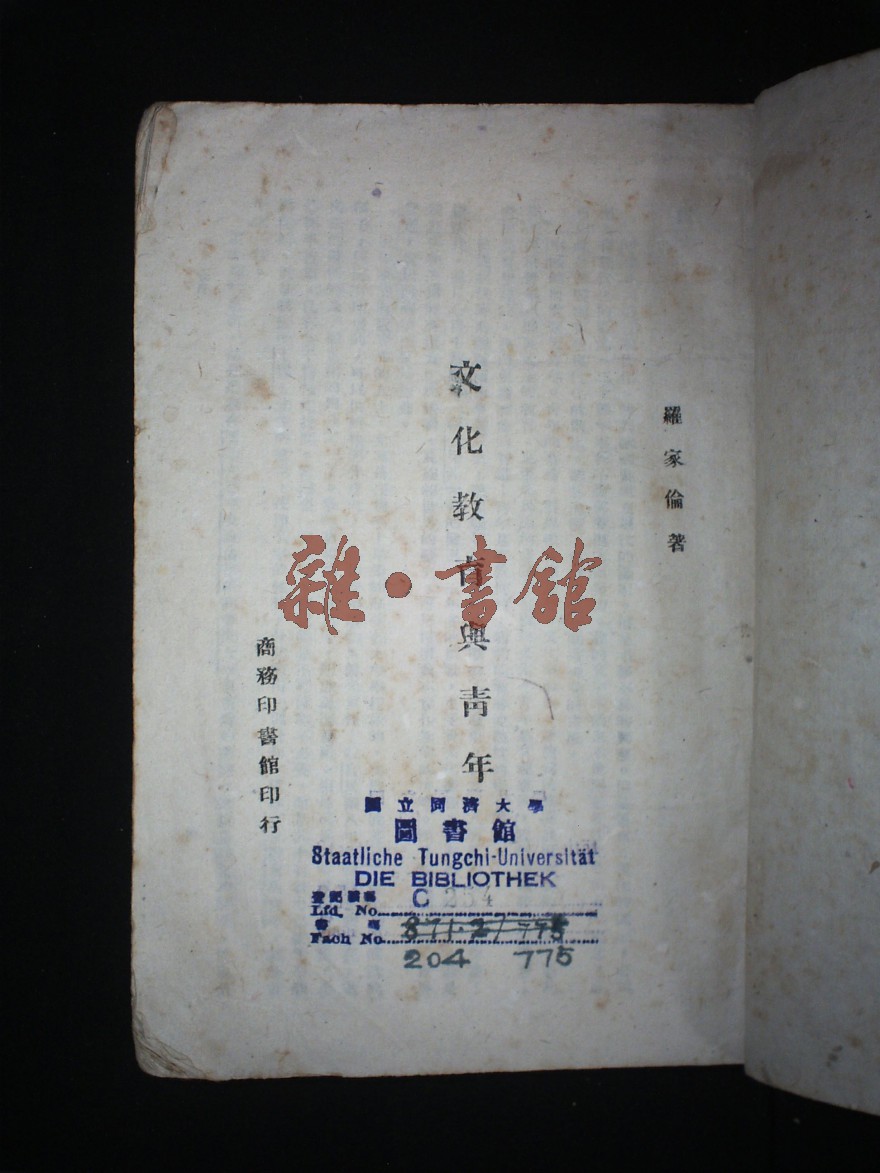 羅家倫著
文化教育與青年
商務印書館印行
雜·書館
國立同濟大學
圖書館
Staatliche Tungchi-Universität
DIE BIBLIOTHEK
登記號碼 C 254
Lfd. No.
書碼 871.2/775
Fach No.
204 775